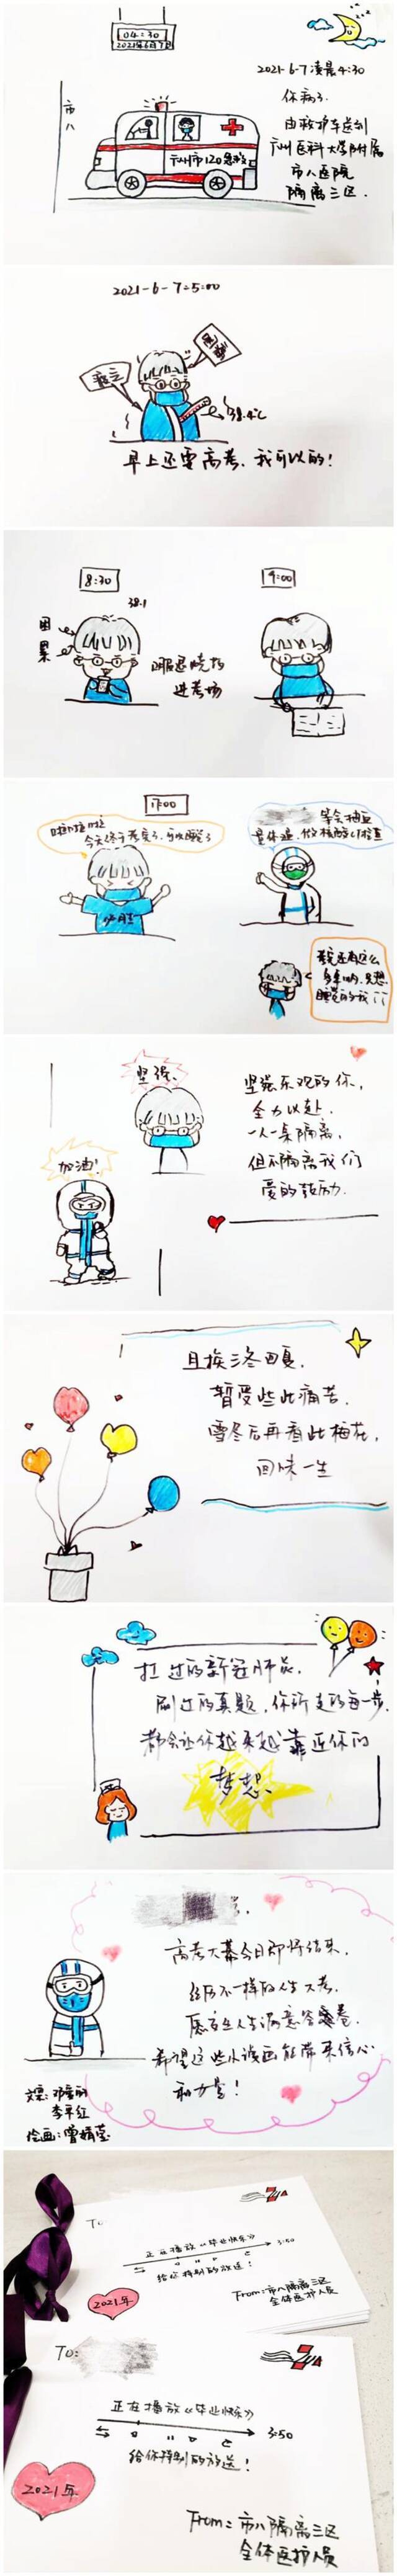 04:30
2021年6月7日
市八
广州市120急救
2021-6-7凌晨4:30
你病了.
由救护车送到
广州医科大学附属
市八医院
隔离三区.
2021-6-7=5:00
38.4℃
早上还要高考.我可以的!
8:30
38.1
困
累
喝退烧药
进考场
9:00
17:00
啦啦啦
今天终于考完了,可以睡觉了
必胜
等会抽血
量体温,做核酸检查
坚强
加油!
坚强乐观的你,
全力以赴.
一人一桌隔离,
但不隔离我们
爱的鼓励.
且挨三冬四夏,
暂受些此痛苦,
雪冬后再看此梅花,
回味一生
扛过的新冠肺炎.
刷过的真题,你所走的每一步,
都会让你越来越靠近你的
梦想.
高考大幕今日即将结束,
经历不一样的人生大考.
愿交出人生满意答卷.
希望这些小漫画能带来信心
和力量!
文案:
李平红
绘画:曾婧莹
To
正在播放《毕业快乐》
3:50
给这特别的放送!
2021年
From:市八隔离三区
全体医护人员
To:
正在播放《毕业快乐》
3:50
给你特别的放送!
2021年
From:市八隔离三区
全体医护人员